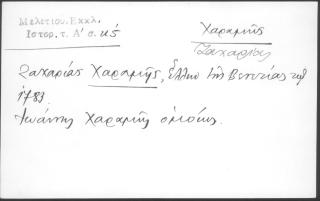 Μελετίου. Εκκλ.
Ιστορ. τ. Α' σ. κέ
Χαραμῆς
Ζαχαρίας
Ζαχαρίας Χαραμῆς, Ἕλλην τῆς Βενετίας
1783.
Ἰωάννης Χαραμῆς ὁμοίως.